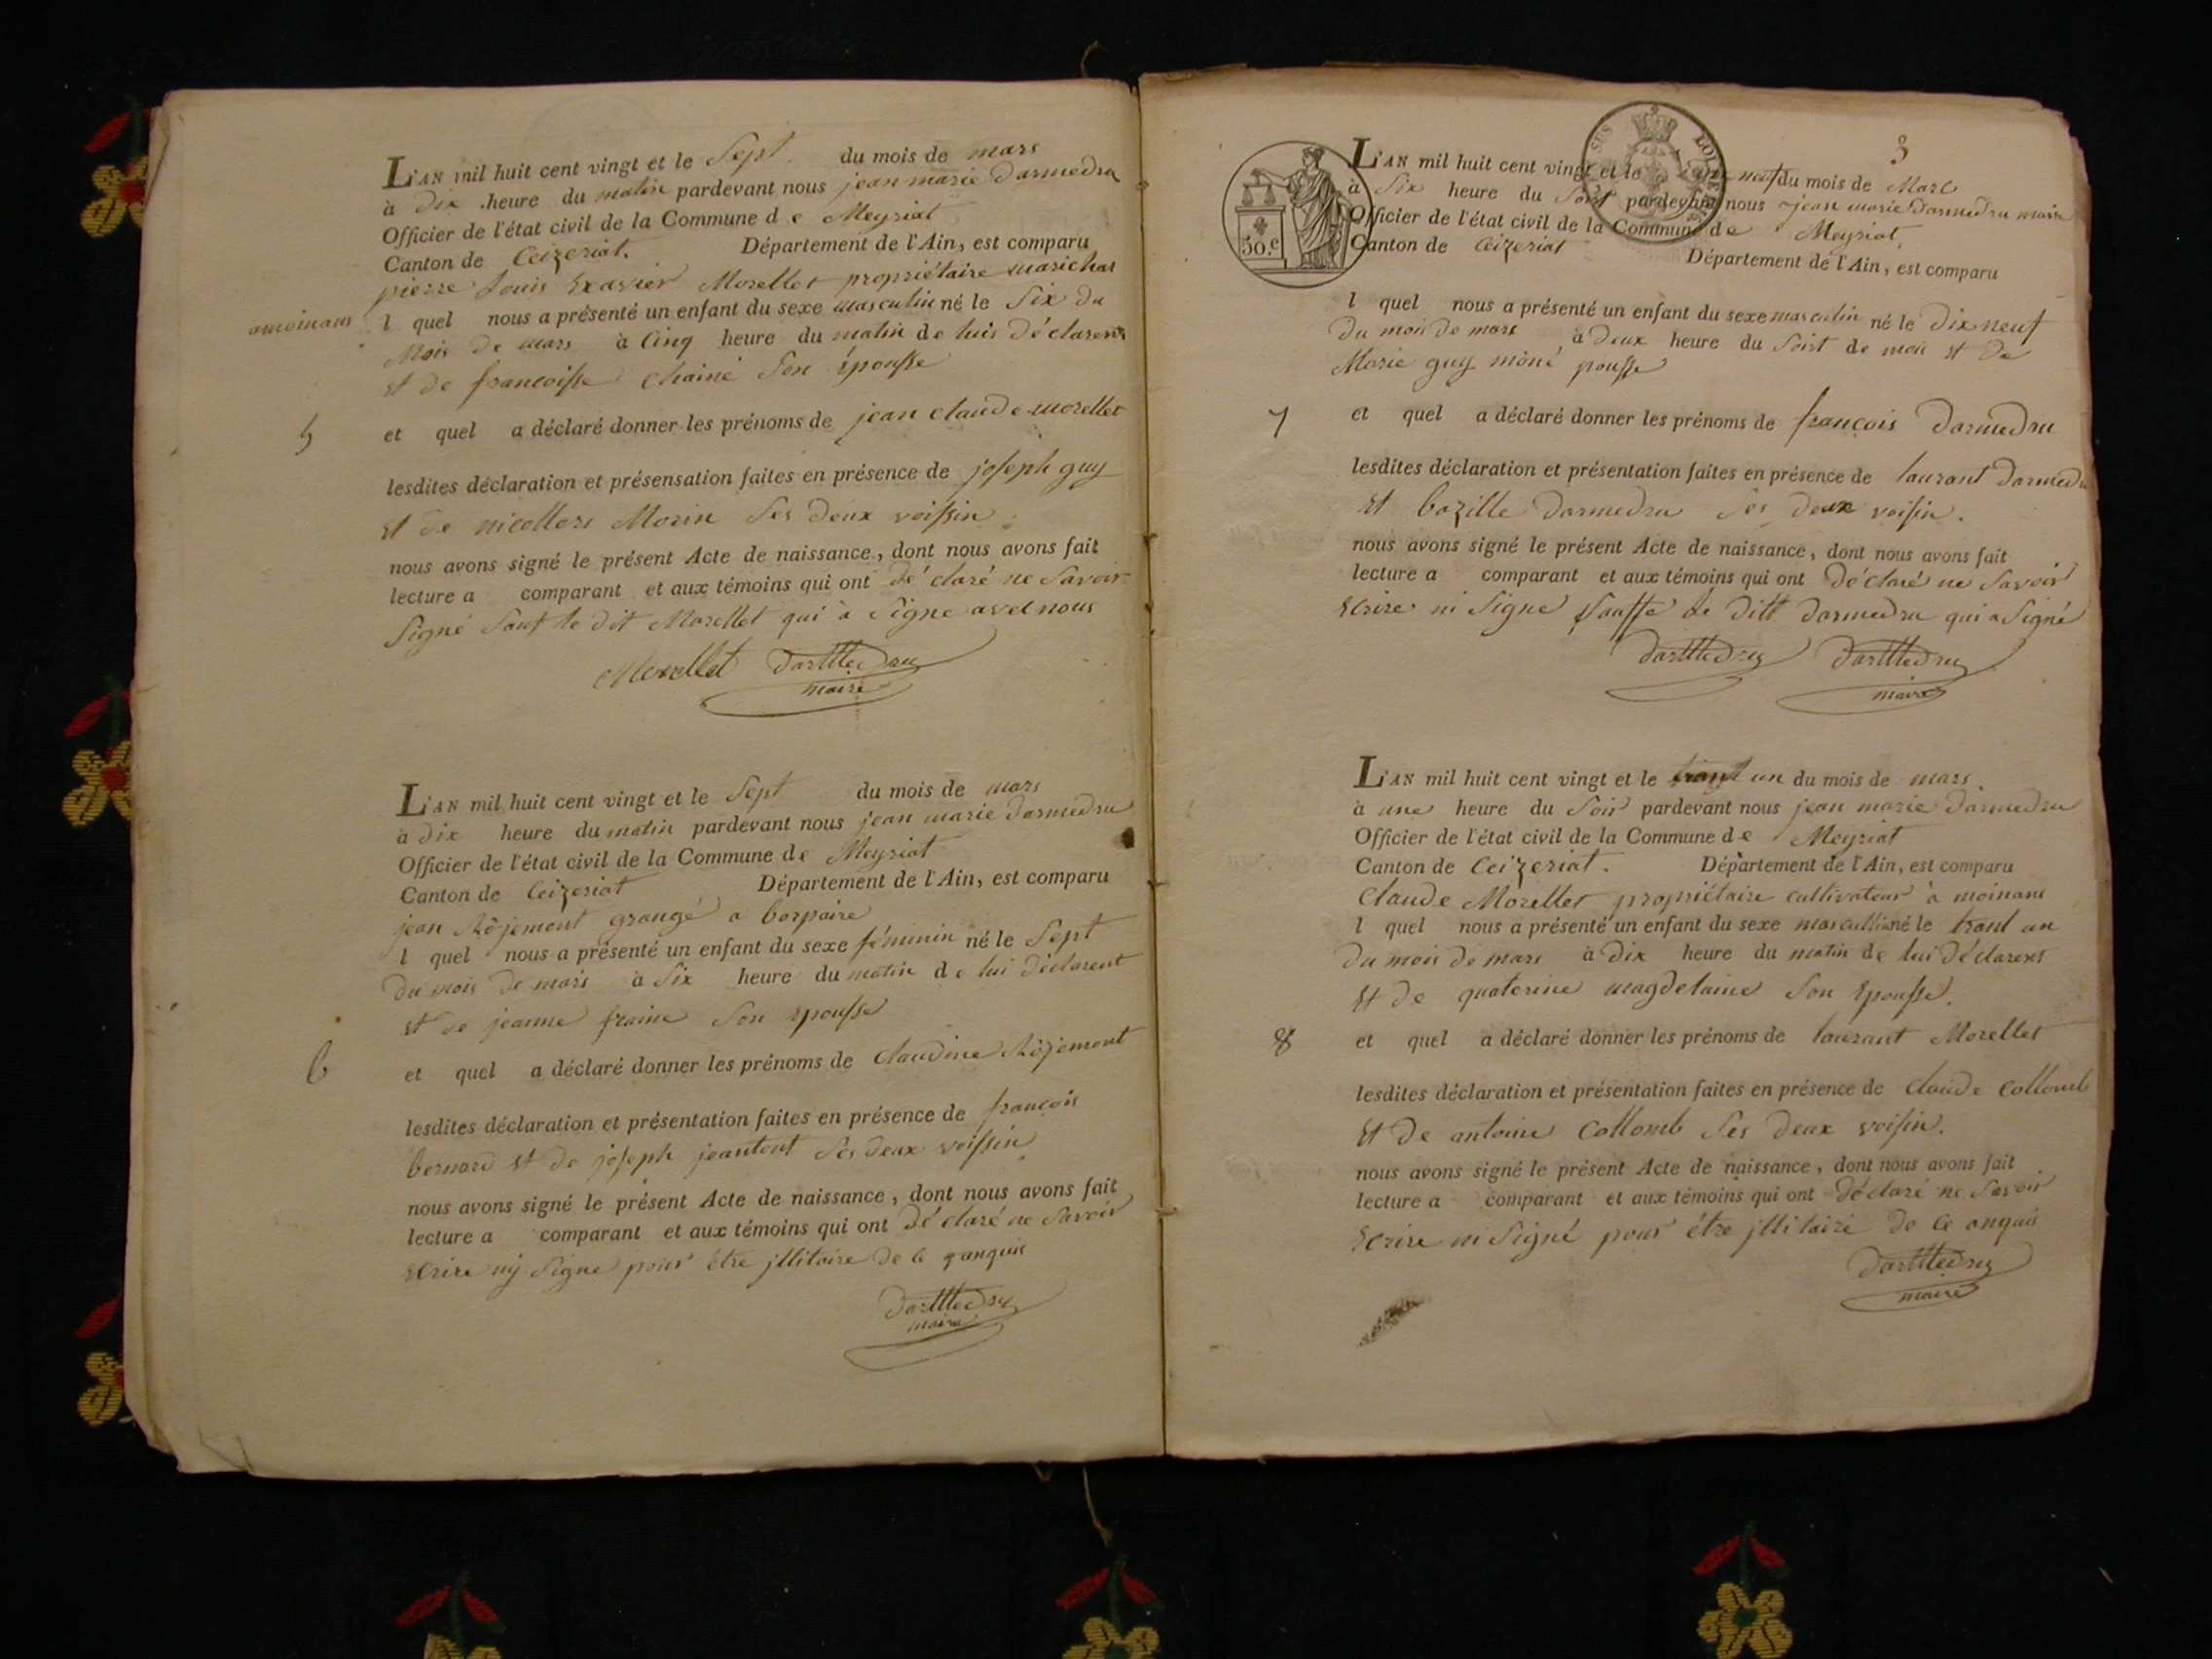 L'AN mil huit cent vingt et le Sept du mois de mars
à Dix heure du matin pardevant nous jean marie Darmedru
Officier de l'état civil de la Commune de Meyriat
Canton de Ceizeriat. Département de l'Ain, est comparu
pierre Louis Exavier Morellet propriétaire marichal
amoinans l quel nous a présenté un enfant du sexe masculin né le Six du
Mois de mars à Cinq heure du matin de luis déclarent
et de francoisse chainé Son épousse
5 et quel a déclaré donner les prénoms de jean claude morellet
lesdites déclaration et présensation faites en présence de joseph guy
et de nicollas Morin Ses deux voissin
nous avons signé le présent Acte de naissance, dont nous avons fait
lecture a comparant et aux témoins qui ont dé claré ne Savoir
Signé Sauf le dit Morellet qui à Signe avec nous
Morellet Darmedru
maire
L'AN mil huit cent vingt et le Sept du mois de mars
à dix heure du matin pardevant nous jean marie Darmedru
Officier de l'état civil de la Commune de Meyriat
Canton de Ceizeriat Département de l'Ain, est comparu
jean Rojemont grangé a borpaire
l quel nous a présenté un enfant du sexe féminin né le Sept
du mois de mars à Six heure du matin de lui déclarent
et de jeanne fraine Son epousse
6 et quel a déclaré donner les prénoms de claudine Rojemont
lesdites déclaration et présentation faites en présence de françois
bernard et de joseph jeantont Ses deux voissin
nous avons signé le présent Acte de naissance, dont nous avons fait
lecture a comparant et aux témoins qui ont dé claré ne Savoir
ecrire ny Signe pour étre jllitaire de ce
Darmedru
maire
3
L'AN mil huit cent vingt et le neuf du mois de Mars
à Six heure du Soirt pardevant nous jean marie Darmedru maire
Officier de l'état civil de la Commune de Meyriat,
Canton de Ceizeriat Département de l'Ain, est comparu
50.c
l quel nous a présenté un enfant du sexe masculin né le Dix neuf
du mois de mars à Deux heure du Soirt de moi et de
Marie guy mon épousse
7 et quel a déclaré donner les prénoms de françois Darmedru
lesdites déclaration et présentation faites en présence de laurant Darmedru
et bazille Darmedru Ses deux voisin.
nous avons signé le présent Acte de naissance, dont nous avons fait
lecture a comparant et aux témoins qui ont Déclaré ne Savoir
ecrire ni Signe Sauffe le ditt Darmedru qui a Signé
Darmedru Darmedru
maire
L'AN mil huit cent vingt et le trant un du mois de mars
à une heure du Soir pardevant nous jean marie Darmedru
Officier de l'état civil de la Commune de Meyriat
Canton de Ceizeriat. Département de l'Ain, est comparu
Claude Morellet propriétaire cultivateur à moinans
l quel nous a présenté un enfant du sexe masculin né le trant un
du mois de mars à Dix heure du matin de lui déclarent
et de quaterine magdelaine Son Epousse.
8 et quel a déclaré donner les prénoms de laurant Morellet
lesdites déclaration et présentation faites en présence de claude Collomb
et de antoine Collomb Ses deux voisin.
nous avons signé le présent Acte de naissance, dont nous avons fait
lecture a comparant et aux témoins qui ont dé claré ne Savoir
ecrire ni Signé pour étre jllitairé de ce anquis
Darmedru
maire